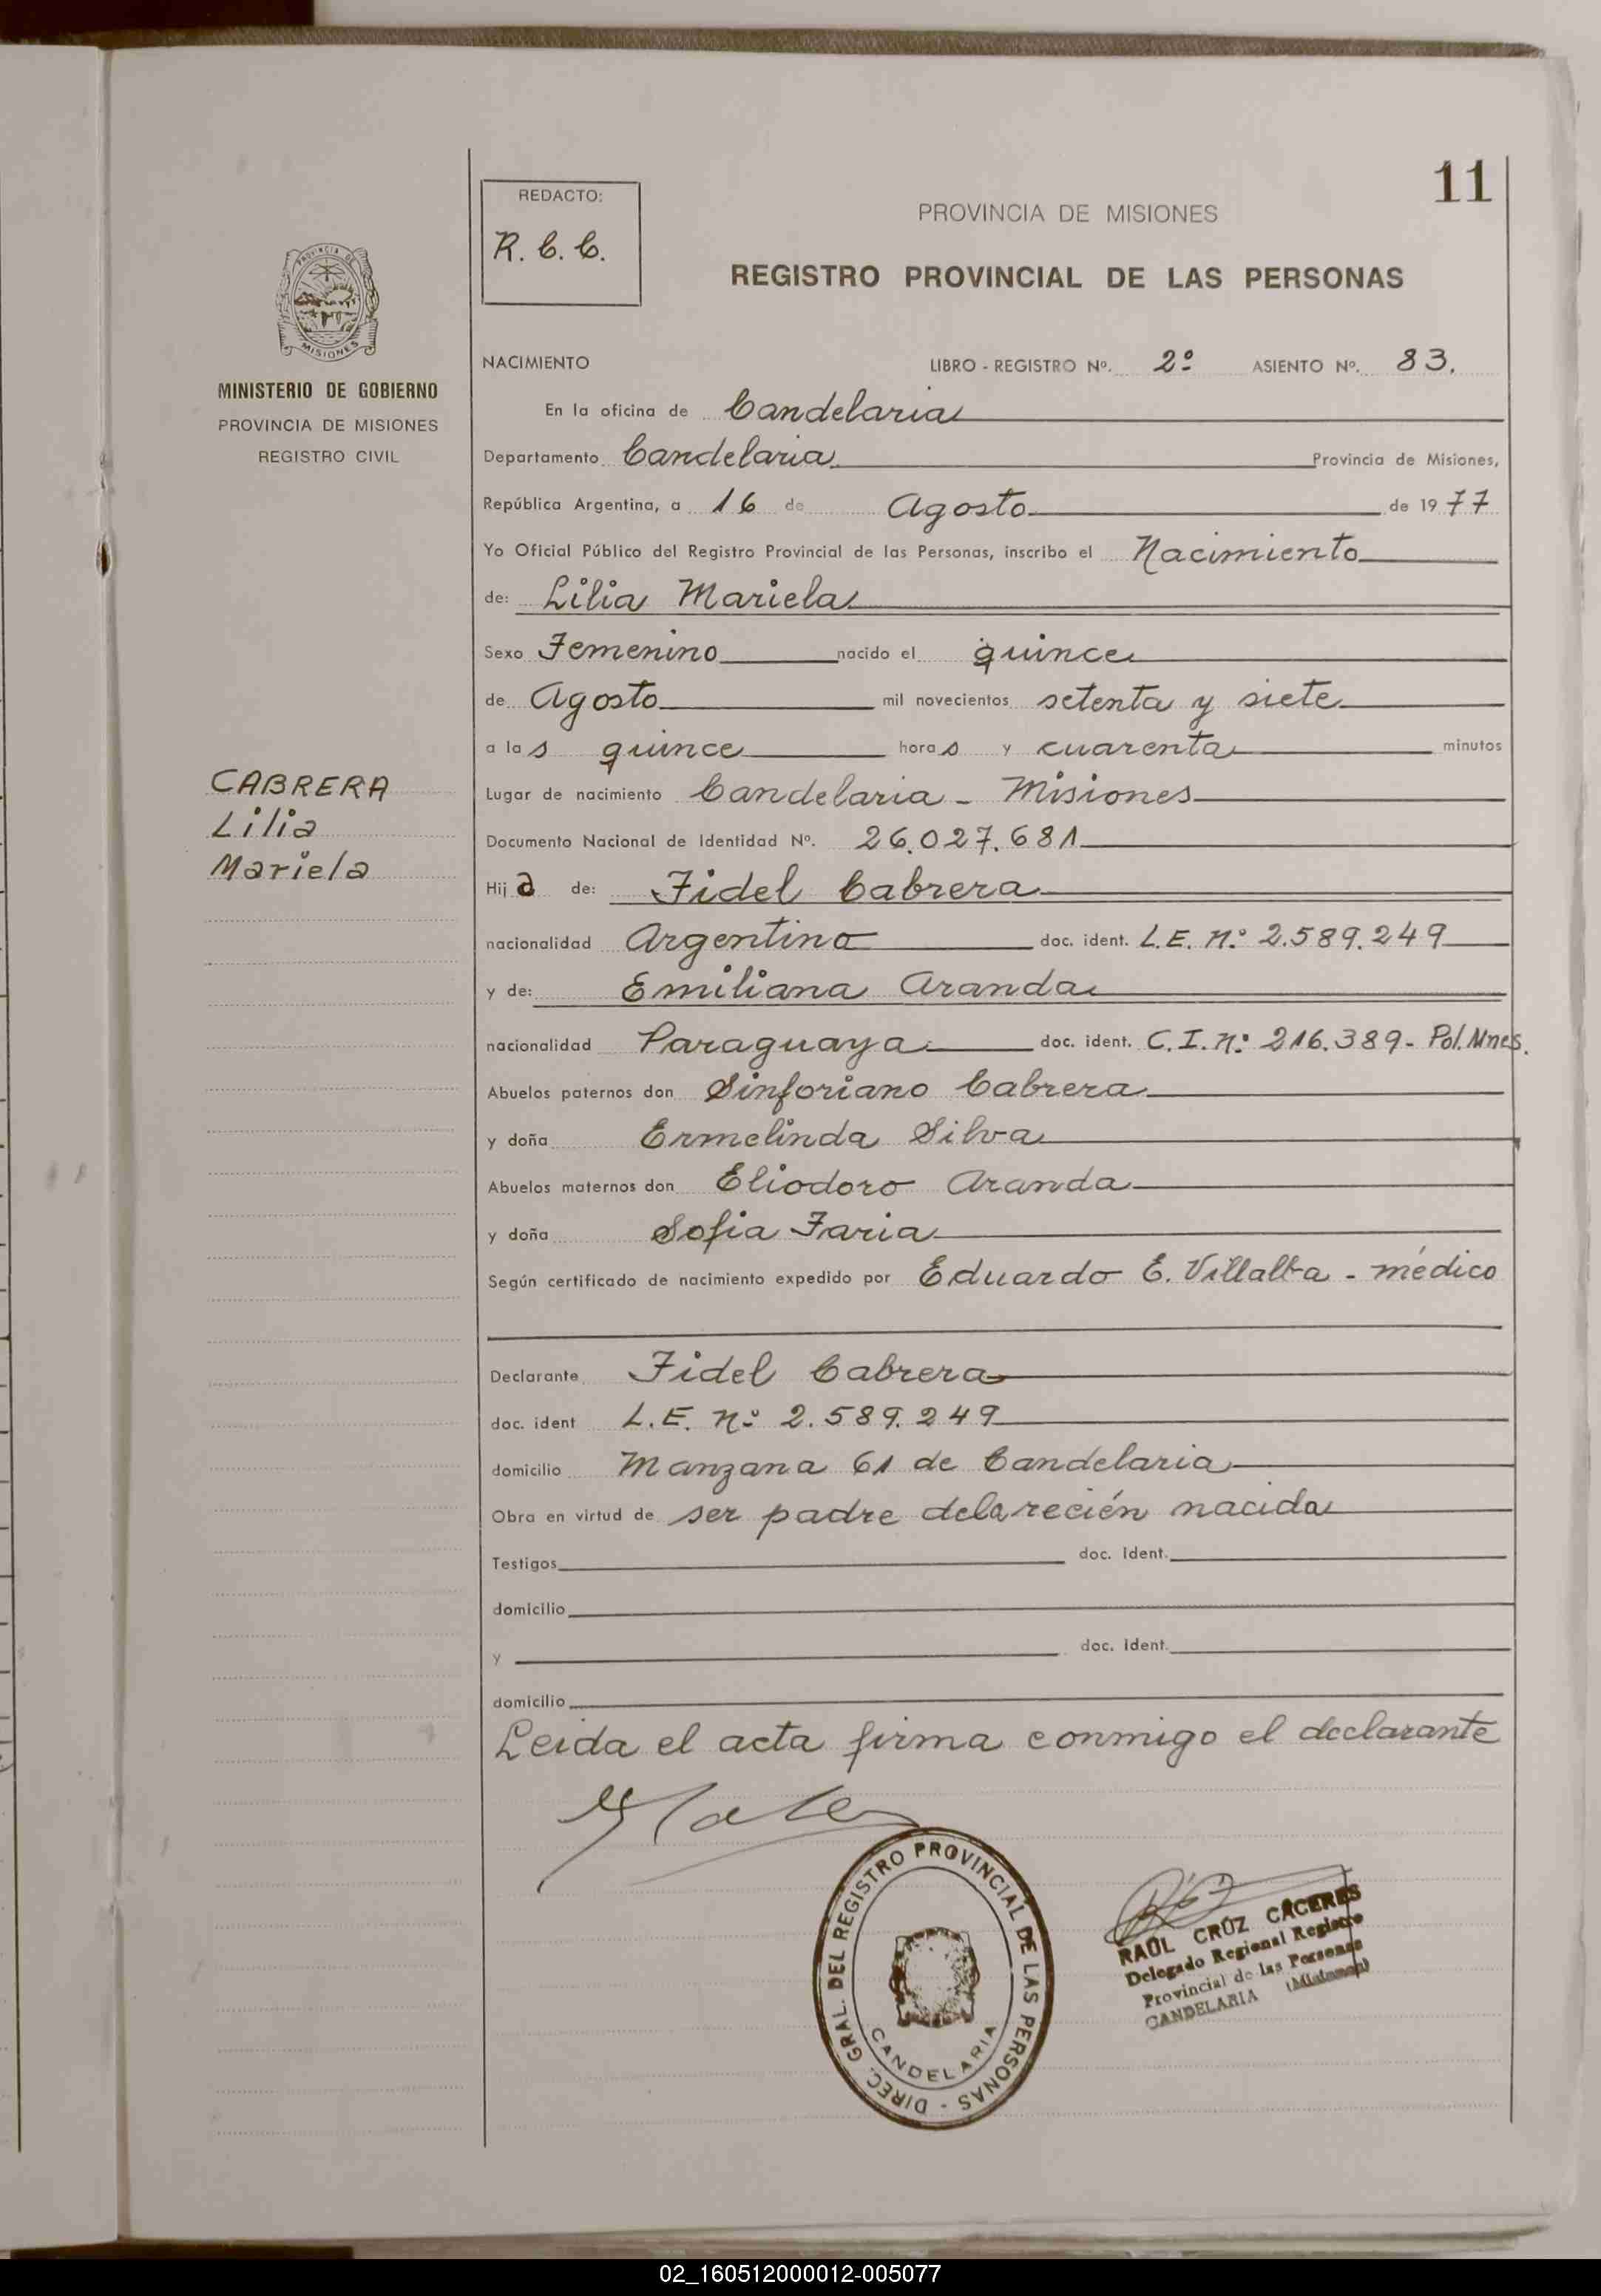 11
REDACTO:
R. C. C.
PROVINCIA DE MISIONES
REGISTRO PROVINCIAL DE LAS PERSONAS
PROVINCIA DE
MISIONES
MINISTERIO DE GOBIERNO
PROVINCIA DE MISIONES
REGISTRO CIVIL
CABRERA
Lilia
Mariela
NACIMIENTO LIBRO - REGISTRO Nº. 2º ASIENTO Nº. 83.
En la oficina de Candelaria
Departamento Candelaria Provincia de Misiones,
República Argentina, a 16 de Agosto de 1977
Yo Oficial Público del Registro Provincial de las Personas, inscribo el Nacimiento
de: Lilia Mariela
Sexo Femenino nacido el quince
de Agosto mil novecientos setenta y siete
a las quince horas y cuarenta minutos
Lugar de nacimiento Candelaria - Misiones
Documento Nacional de Identidad Nº. 26.027.681
Hija de: Fidel Cabrera
nacionalidad Argentino doc. ident. L.E. Nº 2.589.249
y de: Emiliana Aranda
nacionalidad Paraguaya doc. ident. C.I. nº 216.389- Pol. Mnes.
Abuelos paternos don Sinforiano Cabrera
y doña Ermelinda Silva
Abuelos maternos don Eliodoro Aranda
y doña Sofia Faria
Según certificado de nacimiento expedido por Eduardo E. Villalba - médico
Declarante Fidel Cabrera
doc. ident L.E. nº 2.589.249
domicilio Manzana 61 de Candelaria
Obra en virtud de ser padre dela recién nacida
Testigos doc. ident.
domicilio
y doc. ident.
domicilio
Leida el acta firma conmigo el declarante
DIREC. GRAL. DEL REGISTRO PROVINCIAL DE LAS PERSONAS -
CANDELARIA
RAUL CRUZ CACERES
Delegado Regional Registro
Provincial de las Personas
CANDELARIA (Misiones)
02_160512000012-005077